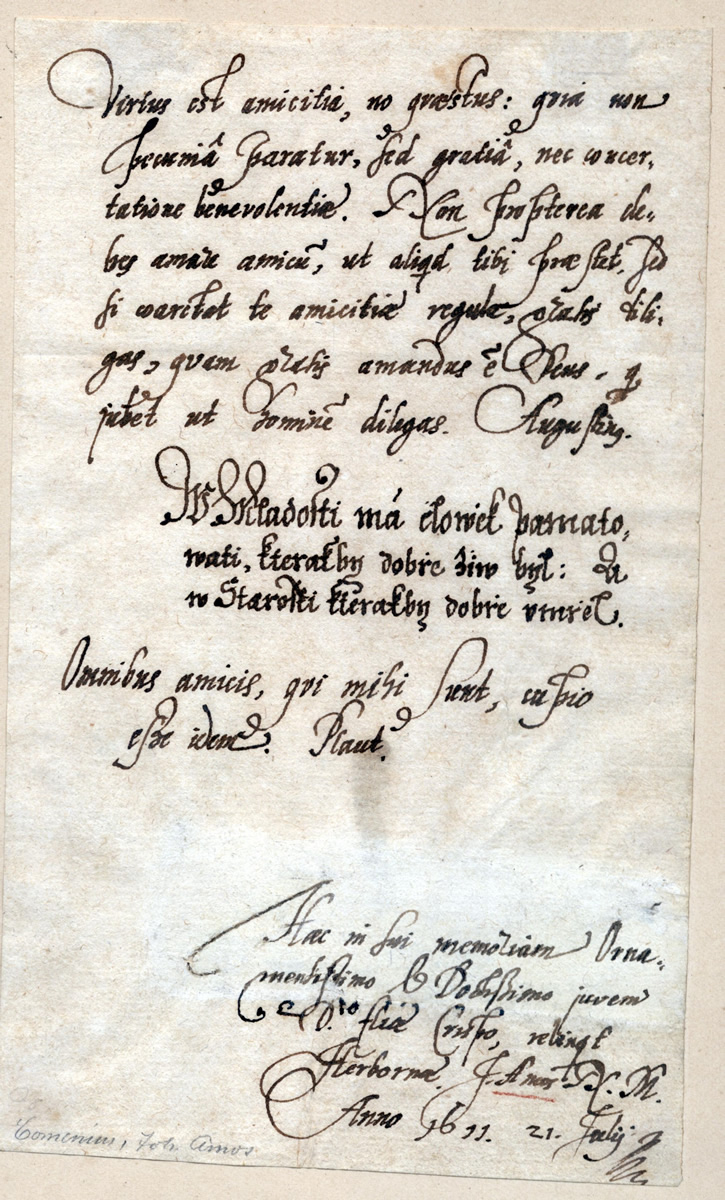 Virtus est amicitia, nō quæstus: quia non
pecuniâ paratur, sed gratiâ, nec concer,
tatione benevolentiæ. Non propterea de,
bes amare amicū, ut aliqd tibi præstet, sed
si
te amicitiæ regulæ, dili,
gas, quam amandus ē Deus,
jubet ut hominē diligas. Augustin9.
W Mladosti má člowěk pamato,
wati, kterakby dobře žiw byl: A
w Starosti kterakby dobře vmřel.
Omnibus amicis, qui mihi sunt, cupio
esse idem. Plaut.
Hæc in sui memoriam Orna,
mentissimo & Doctissimo juveni
D. Crispo, relinqt
Herbornæ. J. Amos N. M.
Anno 1611. 21. Julij
Comenius, Joh. Amos